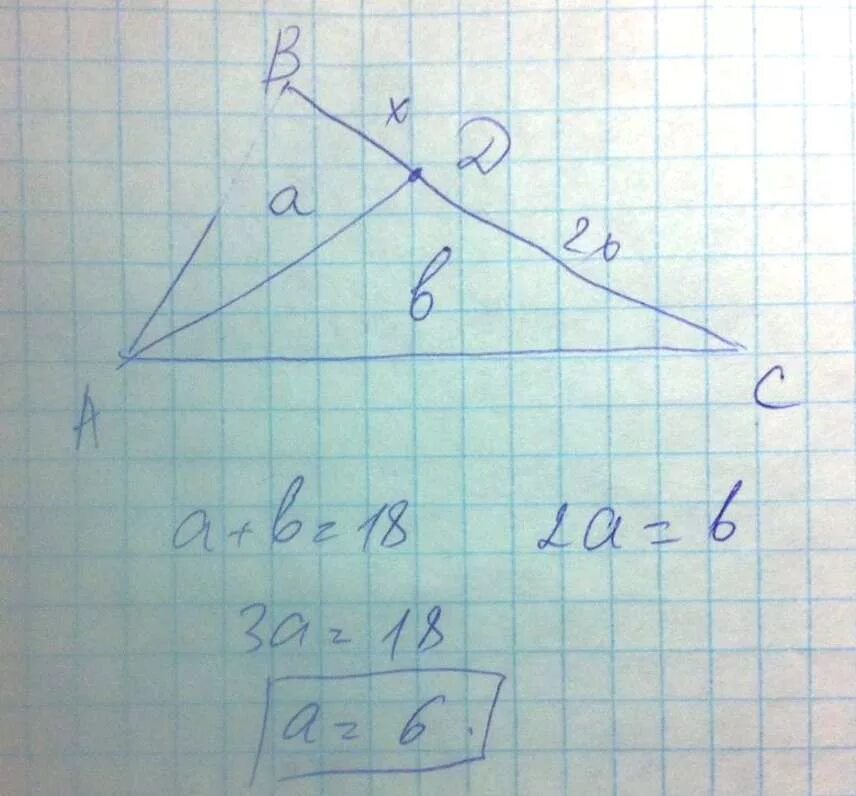 B
x
D
a
2b
b
A
C
a+b=18 2a=b
3a=18
a=6.